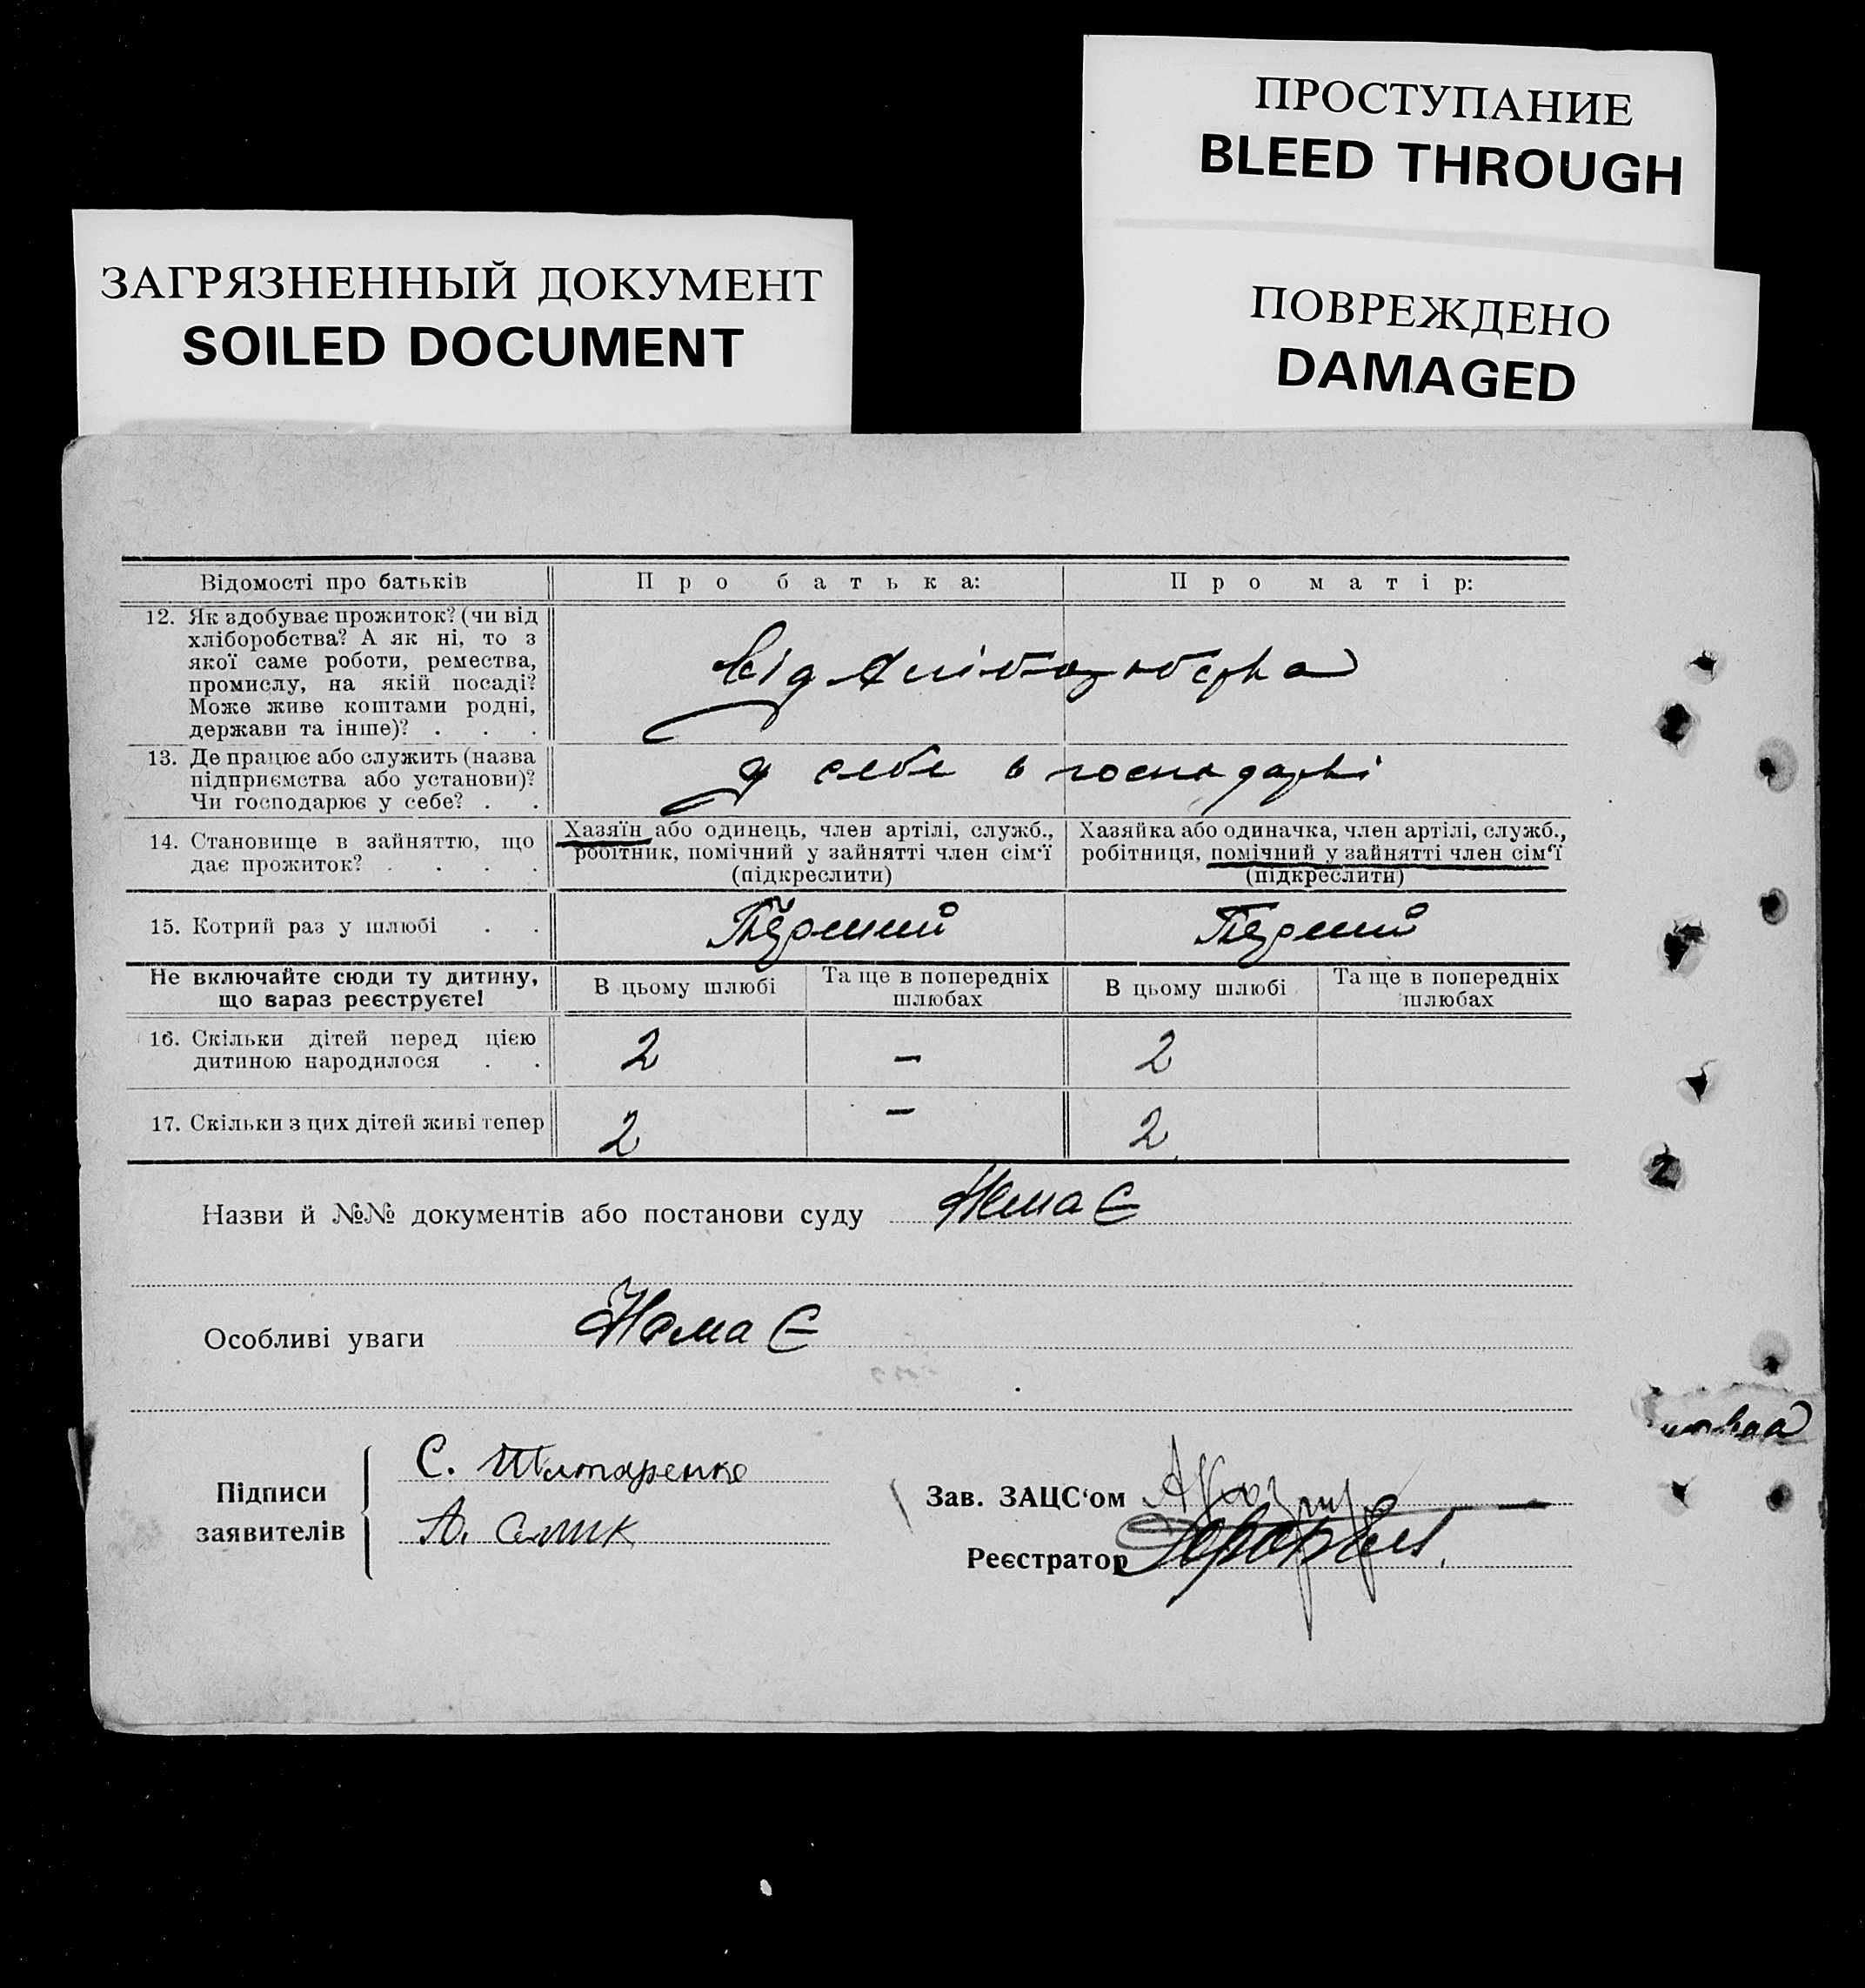 ПРОСТУПАНИЕ
BLEED THROUGH
ЗАГРЯЗНЕННЫЙ ДОКУМЕНТ
SOILED DOCUMENT
ПОВРЕЖДЕНО
DAMAGED
Відомості про батьків Про батька: Про матір:
12. Як здобуває прожиток? (чи від
хліборобства? А як ні, то з
якої саме роботи, ремества,
промислу, на якій посаді?
Може живе коштами родні,
держави та інше)? . . .
Від
13. Де працює або служить (назва
підприємства або установи)?
Чи господарює у себе? . .
у себе в господарві
14. Становище в зайняттю, що
дає прожиток? . . . .
Хазяїн або одинець, член артілі, служб.,
робітник, помічний у зайнятті член сім‘ї
(підкреслити)
Хазяйка або одиначка, член артілі, служб.,
робітниця, помічний у зайнятті член сім‘ї
(підкреслити)
15. Котрий раз у шлюбі . . Перший Перший
Не включайте сюди ту дитину,
що вараз реєструєте!
В цьому шлюбі
Та ще в попередніх
шлюбах
В цьому шлюбі
Та ще в попередніх
шлюбах
16. Скільки дітей перед цією
дитиною народилося . .
2 – 2
17. Скільки з цих дітей живі тепер 2 – 2
Назви й №№ документів або постанови суду Немає
Особливі уваги Немає
Підписи
заявителів
С. Титаренко
А.
Зав. ЗАЦС‘ом
Реєстратор